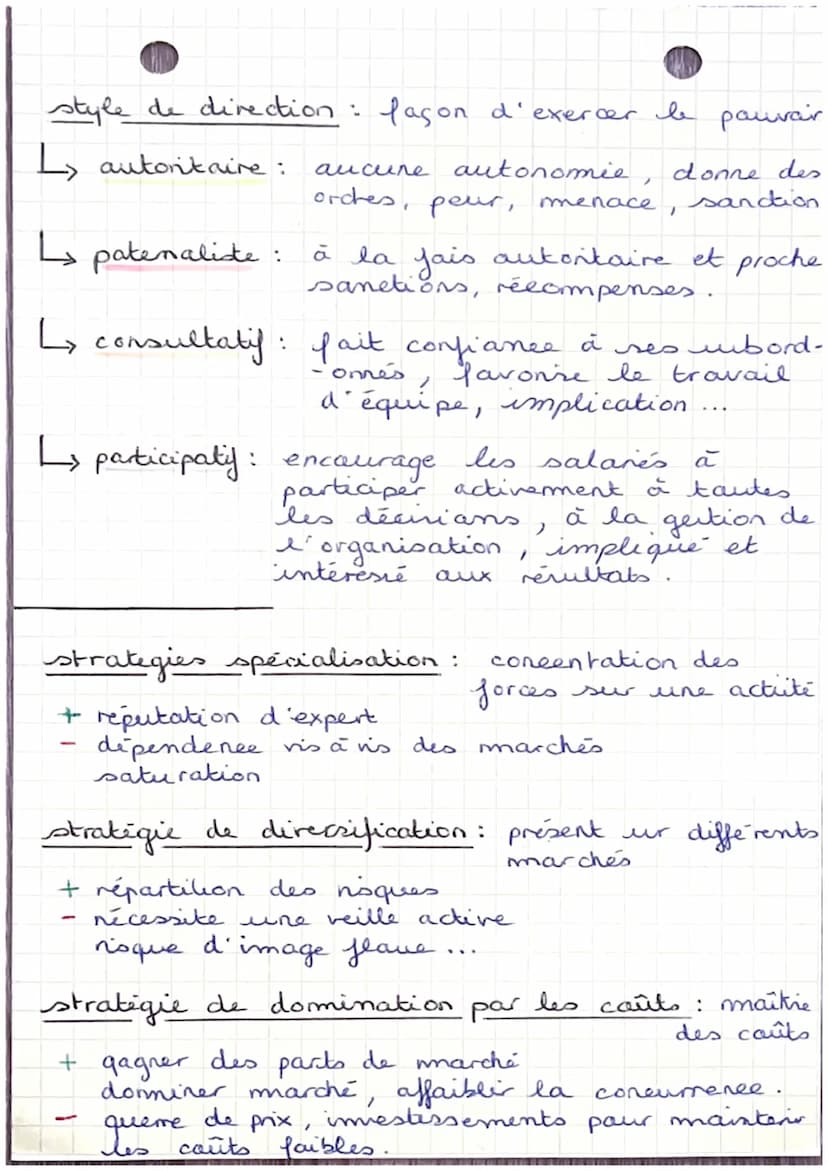 style de direction : façon d'exercer le pouvoir
↳ autoritaire : aucune autonomie, donne des
ordres, peur, menace, sanction
↳ patenaliste : à la fois autoritaire et proche
sanctions, récompenses.
↳ consultatif : fait confiance à ses subord-
-onnés, favorise le travail
d'équipe, implication ...
↳ participatif : encourage les salariés à
participer activement à toutes
les décisions, à la gestion de
l'organisation, impliqué et
intéressé aux résultats.
strategies spécialisation : concentration des
forces sur une activité
+ réputation d'expert
- dépendence vis à vis des marchés
saturation
stratégie de diversification : présent sur différents
marchés
+ répartition des risques
- nécessite une veille active
risque d'image floue ...
stratégie de domination par les coûts : maîtrise
des coûts
+ gagner des parts de marché
dominer marché, affaiblir la concurrence.
- guerre de prix, investissements pour maintenir
les coûts faibles.